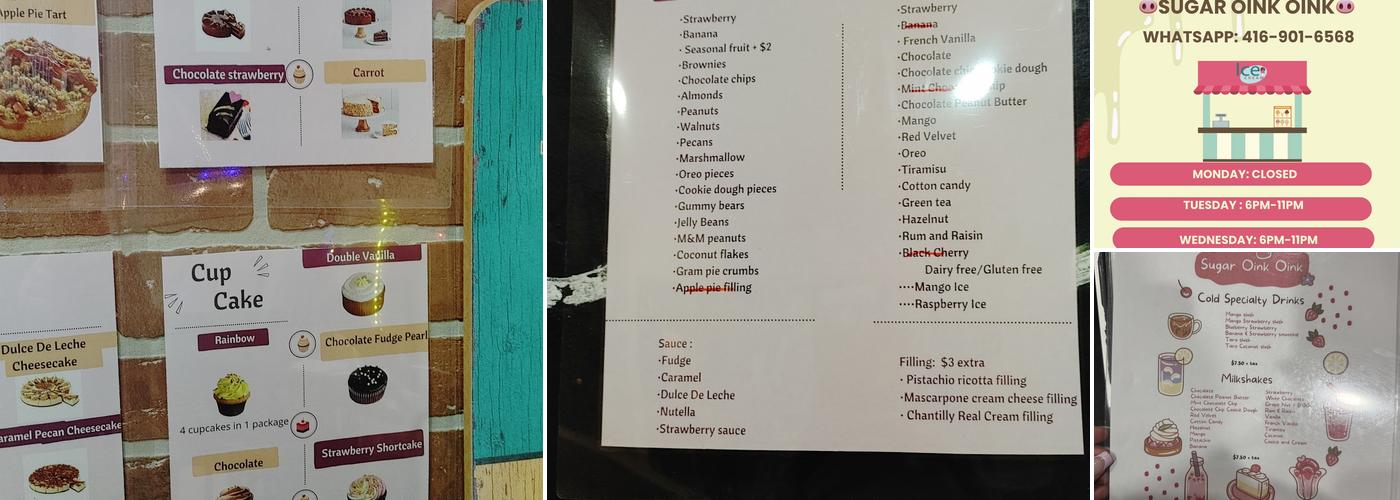 Apple Pie Tart
Chocolate strawberry
Carrot
Dulce De Leche
Cheesecake
aramel Pecan Cheesecake
Cup
Cake
Double Vanilla
Rainbow
Chocolate Fudge Pearl
4 cupcakes in 1 package
Chocolate
Strawberry Shortcake
·Strawberry
·Banana
· Seasonal fruit + $2
·Brownies
·Chocolate chips
·Almonds
·Peanuts
·Walnuts
·Pecans
·Marshmallow
·Oreo pieces
·Cookie dough pieces
·Gummy bears
·Jelly Beans
·M&M peanuts
·Coconut flakes
·Gram pie crumbs
·Apple pie filling
Sauce :
·Fudge
·Caramel
·Dulce De Leche
·Nutella
·Strawberry sauce
·Strawberry
·Banana
· French Vanilla
·Chocolate
·Chocolate chip cookie dough
·Mint Chocolate chip
·Chocolate Peanut Butter
·Mango
·Red Velvet
·Oreo
·Tiramisu
·Cotton candy
·Green tea
·Hazelnut
·Rum and Raisin
·Black Cherry
Dairy free/Gluten free
····Mango Ice
····Raspberry Ice
Filling: $3 extra
· Pistachio ricotta filling
·Mascarpone cream cheese filling
· Chantilly Real Cream filling
SUGAR OINK OINK
WHATSAPP: 416-901-6568
Ice
MONDAY: CLOSED
TUESDAY : 6PM-11PM
WEDNESDAY: 6PM-11PM
Sugar Oink Oink
Cold Specialty Drinks
Mango slush
Mango Strawberry slush
Blueberry Strawberry
Banana & Strawberry smoothie
Taro slush
Taro Coconut slush
$7.50 + tax
Milkshakes
Chocolate
Chocolate Peanut Butter
Mint Chocolate Chip
Chocolate Chip Cookie Dough
Red Velvet
Cotton Candy
Hazelnut
Mango
Pistachio
Banana
Strawberry
White Chocolate
Rum & Raisin
Vanilla
French Vanilla
Tiramisu
Coconut
Cookie and Cream
$7.50 + tax